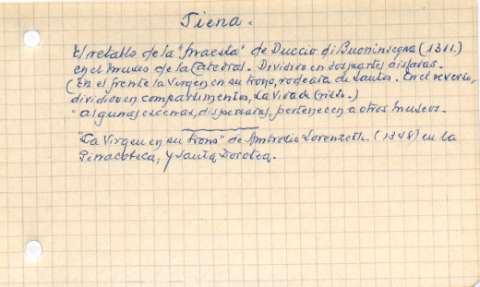 Siena.
El retablo de la "Maestá" de Duccio di Buoninsegna (1311)
en el Museo de la Catedral. Dividido en dos partes
(En el frente la Virgen en su trono, rodeada de santos. En el reverso,
dividido en compartimentos, la Vida de Cristo.
algunas escenas, dispersadas, pertenecen a otros museos.
"La Virgen en su trono" de Ambrosio Lorenzetti. (1348) en la
Pinacoteca, y Santa Dorotea.